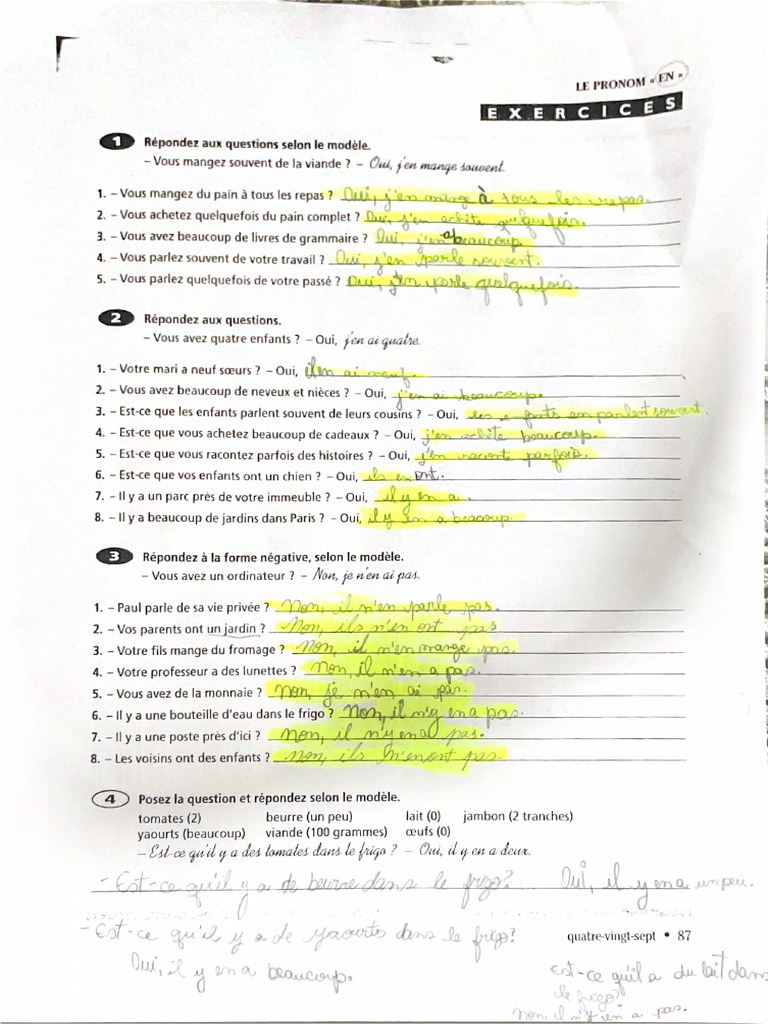 LE PRONOM « EN »
EXERCICES
1 Répondez aux questions selon le modèle.
– Vous mangez souvent de la viande ? – Oui, j'en mange souvent.
1. – Vous mangez du pain à tous les repas ? Oui, j'en mange à tous les repas.
2. – Vous achetez quelquefois du pain complet ? Oui, j'en achète quelquefois.
3. – Vous avez beaucoup de livres de grammaire ? Oui, j'en ai beaucoup.
4. – Vous parlez souvent de votre travail ? Oui, j'en parle souvent.
5. – Vous parlez quelquefois de votre passé ? Oui, j'en parle quelquefois.
2 Répondez aux questions.
– Vous avez quatre enfants ? – Oui, j'en ai quatre.
1. – Votre mari a neuf sœurs ? – Oui, il en ai neuf.
2. – Vous avez beaucoup de neveux et nièces ? – Oui, j'en ai beaucoup.
3. – Est-ce que les enfants parlent souvent de leurs cousins ? – Oui, les enfants en parlent souvent.
4. – Est-ce que vous achetez beaucoup de cadeaux ? – Oui, j'en achète beaucoup.
5. – Est-ce que vous racontez parfois des histoires ? – Oui, j'en raconte parfois.
6. – Est-ce que vos enfants ont un chien ? – Oui, ils en ont.
7. – Il y a un parc près de votre immeuble ? – Oui, il y en a.
8. – Il y a beaucoup de jardins dans Paris ? – Oui, il y en a beacoup.
3 Répondez à la forme négative, selon le modèle.
– Vous avez un ordinateur ? – Non, je n'en ai pas.
1. – Paul parle de sa vie privée ? Non, il n'en parle pas.
2. – Vos parents ont un jardin ? Non, ils n'en ont pas
3. – Votre fils mange du fromage ? Non, il n'en mange pas.
4. – Votre professeur a des lunettes ? Non, il n'en a pas.
5. – Vous avez de la monnaie ? Non, je n'en ai pas.
6. – Il y a une bouteille d'eau dans le frigo ? Non, il n'y en a pas.
7. – Il y a une poste près d'ici ? Non, il n'y en a pas.
8. – Les voisins ont des enfants ? Non, ils n'en ont pas.
4 Posez la question et répondez selon le modèle.
tomates (2) beurre (un peu) lait (0) jambon (2 tranches)
yaourts (beaucoup) viande (100 grammes) œufs (0)
– Est-ce qu'il y a des tomates dans le frigo ? – Oui, il y en a deux.
- Est-ce qu'il y a de beurre dans le frigo? Oui, il y en a un peu.
- Est-ce qu'il y a de yaourts dans le frigo?
quatre-vingt-sept • 87
Oui, il y en a beaucoup.
Est-ce qu'il a du lait dans
le frigo?
Non, il n'y en a pas.